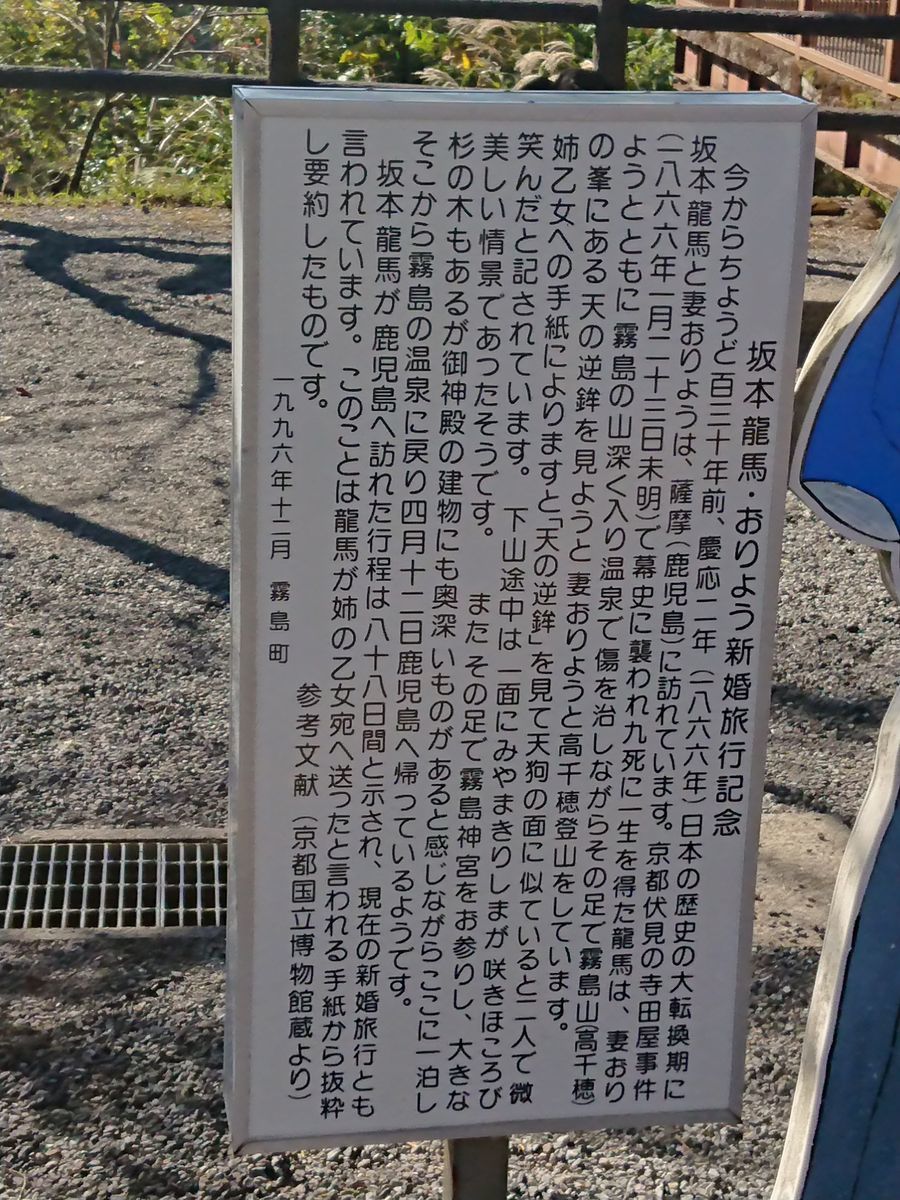 坂本龍馬・おりよう新婚旅行記念
今からちょうど百三十年前、慶応二年(一八六六年)日本の歴史の大転換期に
坂本龍馬と妻おりようは、薩摩(鹿児島)に訪れています。京都伏見の寺田屋事件
(一八六六年一月二十三日未明)で幕史に襲われ九死に一生を得た龍馬は、妻おり
ようとともに霧島の山深く入り温泉で傷を治しながらその足で霧島山(高千穂)
の峯にある天の逆鉾を見ようと妻おりようと高千穂登山をしています。
姉乙女への手紙によりますと「天の逆鉾」を見て天狗の面に似ていると二人で微
笑んだと記されています。 下山途中は一面にみやまきりしまが咲きほころび
美しい情景であつたそうです。 また その足で霧島神宮をお参りし、大きな
杉の木もあるが御神殿の建物にも奥深いものがあると感じながらここに一泊し
そこから霧島の温泉に戻り四月十二日鹿児島へ帰つているようです。
坂本龍馬が鹿児島へ訪れた行程は八十八日間と示され、現在の新婚旅行とも
言われています。このことは龍馬が姉の乙女宛へ送ったと言われる手紙から抜粋
し要約したものです。
参考文献(京都国立博物館蔵より)
一九九六年十二月 霧島町